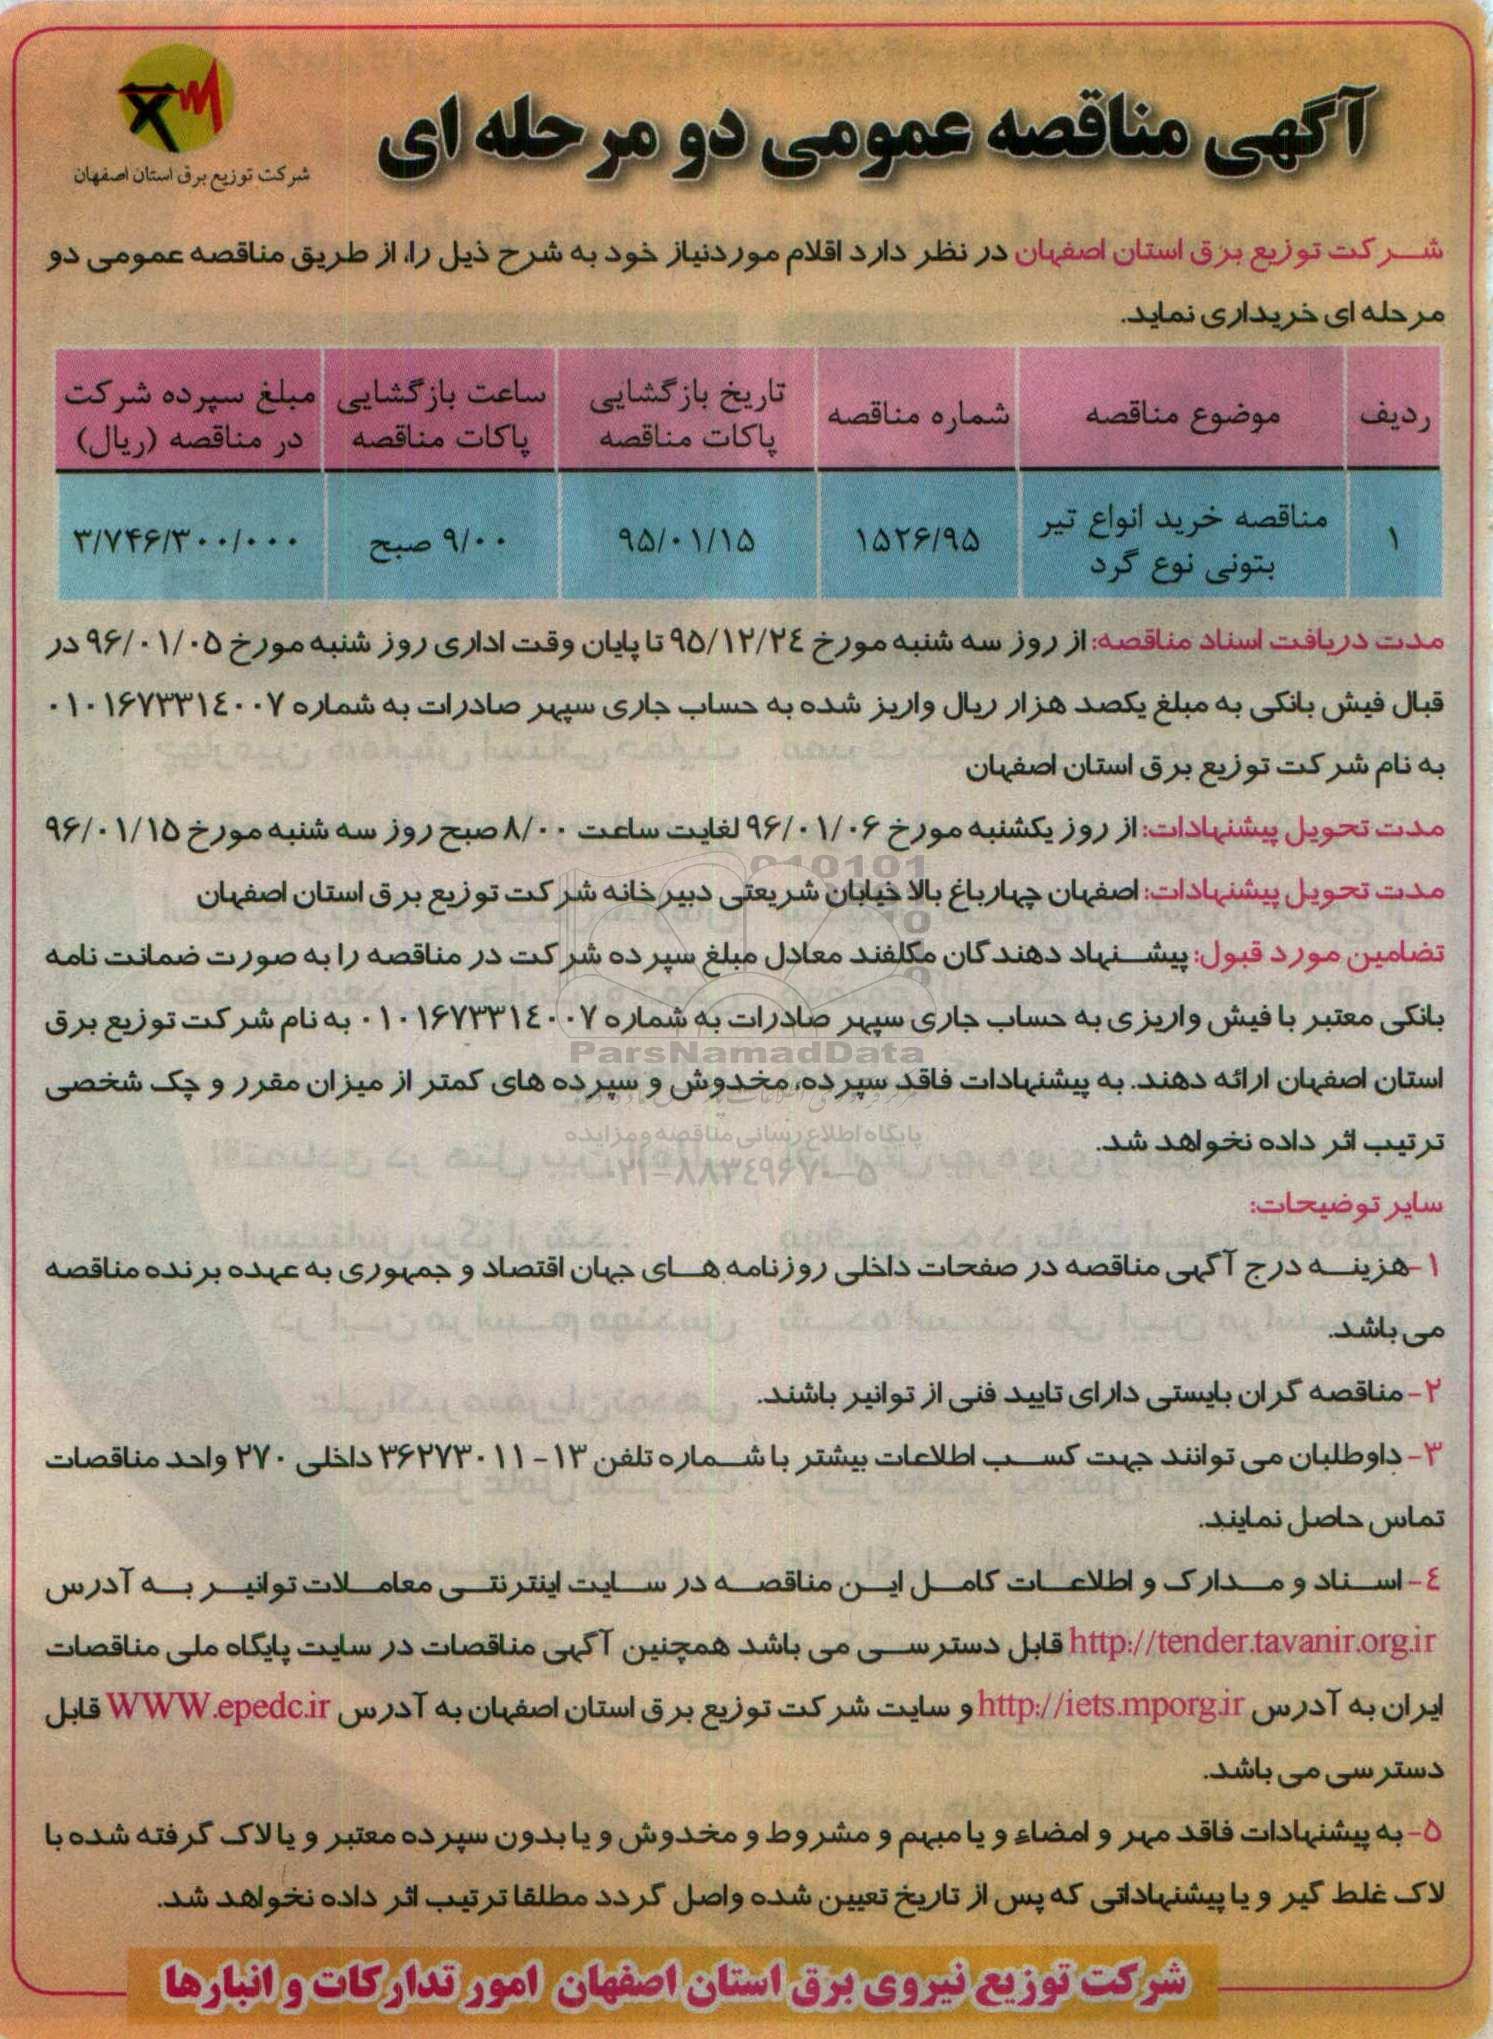 آگهی مناقصه عمومی دو مرحله ای
شرکت توزیع برق استان اصفهان
شرکت توزیع برق استان اصفهان در نظر دارد اقلام موردنیاز خود به شرح ذیل را، از طریق مناقصه عمومی دو
مرحله ای خریداری نماید.
ردیف | موضوع مناقصه | شماره مناقصه | تاریخ بازگشایی پاکات مناقصه | ساعت بازگشایی پاکات مناقصه | مبلغ سپرده شرکت در مناقصه (ریال)
۱ | مناقصه خرید انواع تیر بتونی نوع گرد | ۱۵۲۶/۹۵ | ۹۵/۰۱/۱۵ | ۹/۰۰ صبح | ۳/۷۴۶/۳۰۰/۰۰۰
مدت دریافت اسناد مناقصه: از روز سه شنبه مورخ ۹۵/۱۲/۲۴ تا پایان وقت اداری روز شنبه مورخ ۹۶/۰۱/۰۵ در
قبال فیش بانکی به مبلغ یکصد هزار ریال واریز شده به حساب جاری سپهر صادرات به شماره ۰۱۰۱۶۷۳۳۱۴۰۰۷
به نام شرکت توزیع برق استان اصفهان
مدت تحویل پیشنهادات: از روز یکشنبه مورخ ۹۶/۰۱/۰۶ لغایت ساعت ۸/۰۰ صبح روز سه شنبه مورخ ۹۶/۰۱/۱۵
مدت تحویل پیشنهادات: اصفهان چهارباغ بالا خیابان شریعتی دبیرخانه شرکت توزیع برق استان اصفهان
تضامین مورد قبول: پیشنهاد دهندگان مکلفند معادل مبلغ سپرده شرکت در مناقصه را به صورت ضمانت نامه
بانکی معتبر با فیش واریزی به حساب جاری سپهر صادرات به شماره ۰۱۰۱۶۷۳۳۱۴۰۰۷ به نام شرکت توزیع برق
استان اصفهان ارائه دهند. به پیشنهادات فاقد سپرده، مخدوش و سپرده های کمتر از میزان مقرر و چک شخصی
ترتیب اثر داده نخواهد شد.
ParsNamadData
پایگاه اطلاع رسانی مناقصه و مزایده
۰۲۱-۸۸۳۴۹۶۷۰-۵
سایر توضیحات:
۱-هزینه درج آگهی مناقصه در صفحات داخلی روزنامه های جهان اقتصاد و جمهوری به عهده برنده مناقصه
می باشد.
۲- مناقصه گران بایستی دارای تایید فنی از توانیر باشند.
۳- داوطلبان می توانند جهت کسب اطلاعات بیشتر با شماره تلفن ۱۳-۳۶۲۷۳۰۱۱ داخلی ۲۷۰ واحد مناقصات
تماس حاصل نمایند.
۴- اسناد و مدارک و اطلاعات کامل این مناقصه در سایت اینترنتی معاملات توانیر به آدرس
http://tender.tavanir.org.ir قابل دسترسی می باشد همچنین آگهی مناقصات در سایت پایگاه ملی مناقصات
ایران به آدرس http://iets.mporg.ir و سایت شرکت توزیع برق استان اصفهان به آدرس WWW.epedc.ir قابل
دسترسی می باشد.
۵- به پیشنهادات فاقد مهر و امضاء و یا مبهم و مشروط و مخدوش و یا بدون سپرده معتبر و یا لاک گرفته شده با
لاک غلط گیر و یا پیشنهاداتی که پس از تاریخ تعیین شده واصل گردد مطلقا ترتیب اثر داده نخواهد شد.
شرکت توزیع نیروی برق استان اصفهان امور تدارکات و انبارها